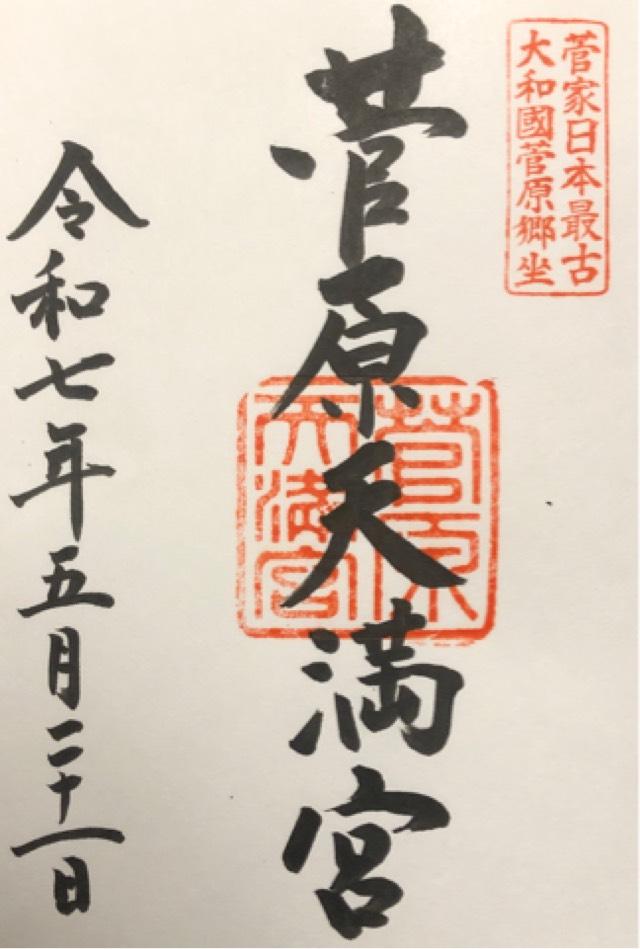 菅家日本最古
大和國菅原郷坐
菅原天満宮
菅原
天満宮
令和七年五月二十一日